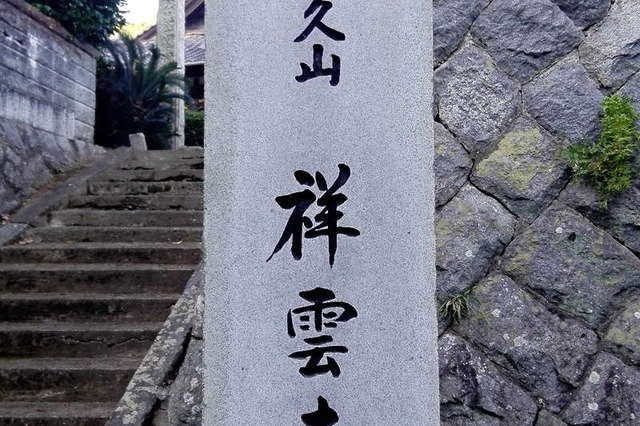 久山 祥雲寺